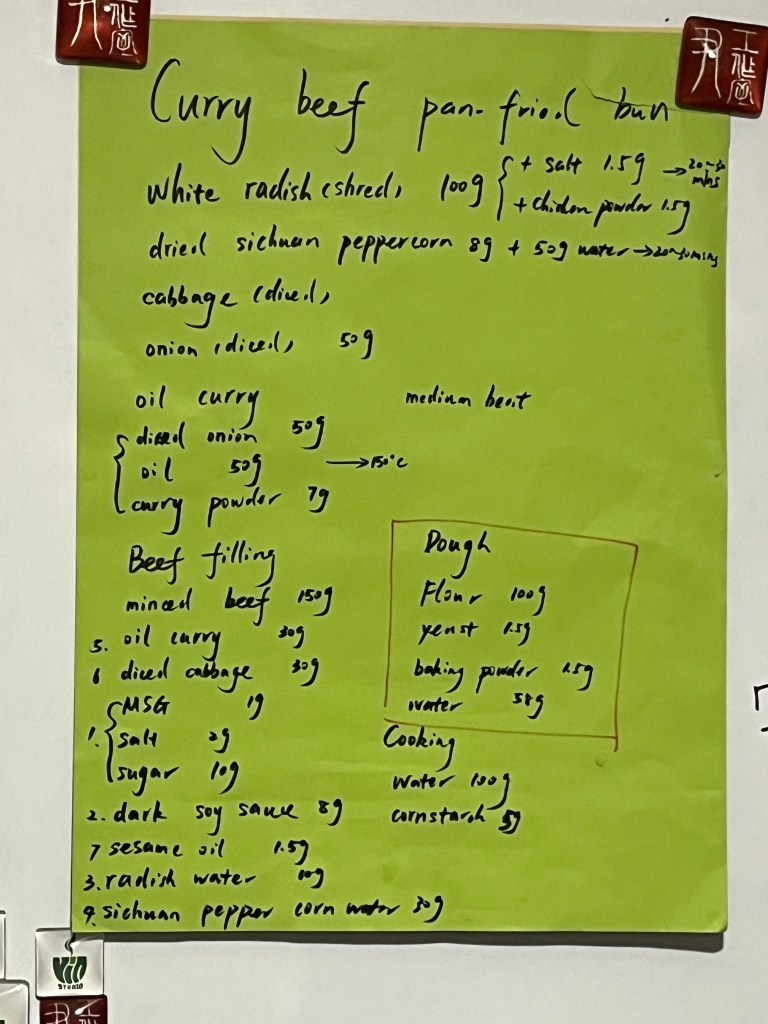 Curry beef pan-fried bun
White radish (shred) 100g { + salt 1.5g → 20~30 mins
+ chicken powder 1.5g
dried sichuan peppercorn 8g + 50g water → 20~30mins
cabbage (diced)
onion (diced) 50g
oil curry medium heat
diced onion 50g
oil 50g → 150°C
curry powder 7g
Beef filling
minced beef 150g
5. oil curry 30g
6 diced cabbage 30g
1. { MSG 1g
salt 2g
sugar 10g
2. dark soy sauce 8g
7 sesame oil 1.5g
3. radish water 10g
4. sichuan pepper corn water 30g
Dough
Flour 100g
yeast 1.5g
baking powder 1.5g
water 58g
Cooking
Water 100g
cornstarch 5g
尹
工作室
尹
工作室
Yin
STUDIO